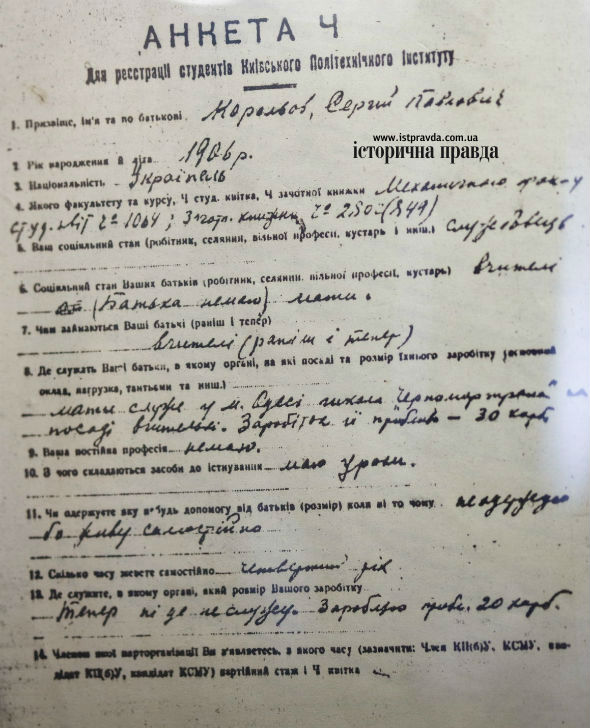 АНКЕТА Ч
Для реєстрації студентів Київського Політехнічного Інституту
1. Призвіще, ім'я та по батькові Корольов, Сергій Павлович
www.istpravda.com.ua
історична правда
2 Рік народження й дата 1906 р.
3. Національність Українець
4. Якого факультету та курсу, Ч студ. квитка, Ч зачотної книжки Механичного фак-у
студ. № 1064;
5. Ваш соціяльний стан (робітник, селянин, вільної професії, кустарь і инш.) службовець
6. Соціяльний стан Ваших батьків (робітник, селянин, вільної професії, кустарь) вчителі
(батька немаю) мати.
7. Чим займаються Ваші батьчі (раніш і тепер)
вчителі (раніш і тепер)
8. Де служать Ваші батьки, в якому органі, на які посаді та розмір їхнього заробітку (основний
оклад, нагрузка, тантьєми та инш.)
мати служе у м. Одесі школа Чорномортранса на
посаді вчительки. Заробіток її приблизно – 30 карб
9. Ваша постійна професія немаю.
10. З чого складаються засоби до існування маю уроки.
11. Чи одержуєте яку небудь допомогу від батьків (розмір) коли ні то чому не одержую
бо живу самостійно
12. Скільки часу живете самостійно четвертий рік
13. Де служите, в якому органі, який розмір Вашого заробітку
Тепер ні де не служу. Заробляю 20 карб.
14. Членом якої парторганізації Ви з'являєтесь, з якого часу (зазначити: Член КП(б)У, КСМУ, кан-
дідат КП(б)У, кандідат КСМУ) партійний стаж і Ч квитка